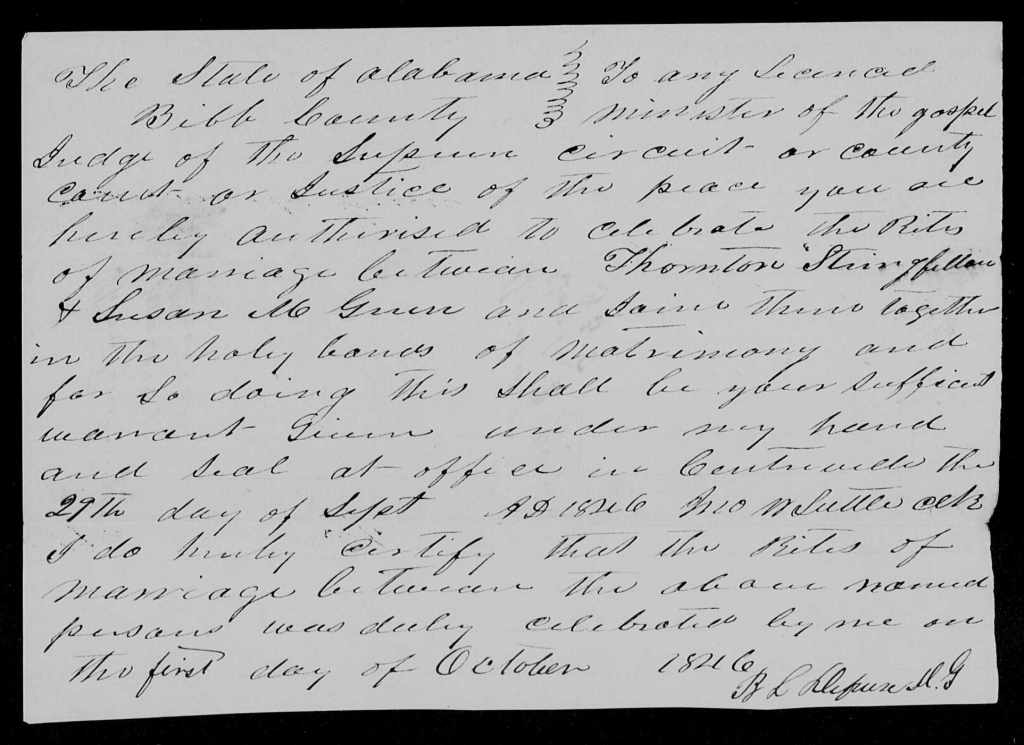 The State of Alabama } To any licenced
Bibb County } minister of the gospel
Judge of the Supreme circuit or county
court or Justice of the peace you are
hereby authorised to celebrate the Rites
of marriage between Thornton Stringfellow
& Susan M Green and Joine them together
in the holy bands of matrimony and
for so doing this shall be your sufficient
warrant Given under my hand
and seal at office in Centreville the
29th day of Sept AD 1846 Jno W Suttle clk
I do hereby certify that the Rites of
marriage between the above named
persons was duly celebrated by me on
the first day of October 1846